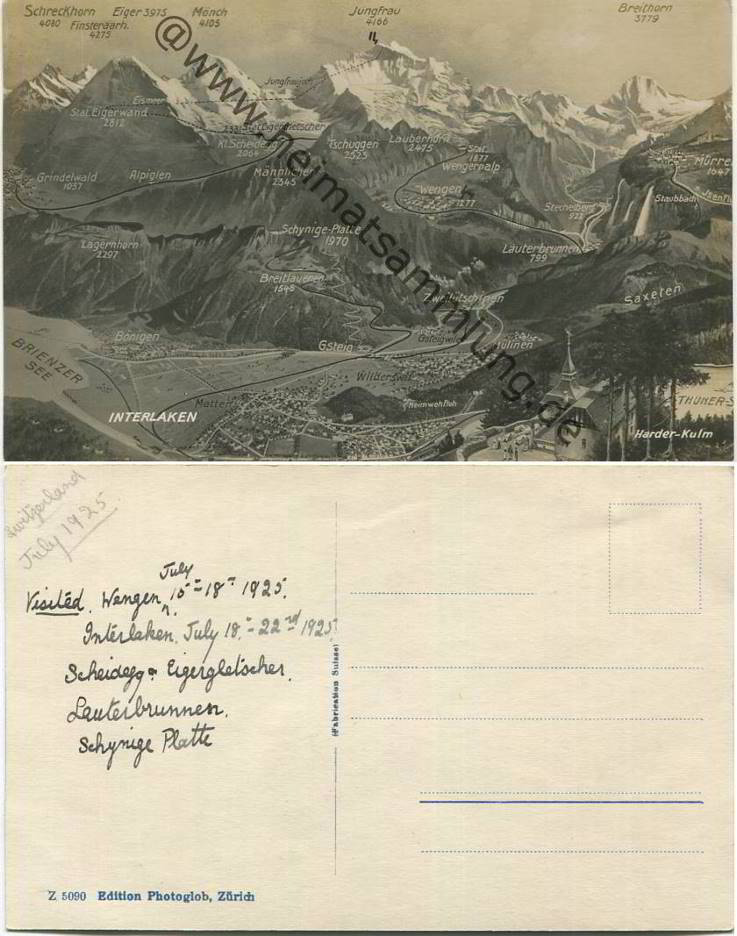 Schreckhorn Eiger 3975 Mönch Jungfrau Breithorn
4080 Finsteraarh. 4105 4166 3779
4275
@www.heimatsammlung.de
Jungfraujoch
Eismeer
Stat. Eigerwand
2812
2331 Stat. Eigergletscher
Kl. Scheidegg
2064
Tschuggen
2523
Lauberhorn
2475
Stat.
1877
Wengernalp
Mürren
1647
Grindelwald
1037
Alpiglen
Männlichen
2345
Wengen
1277
Stechelberg
922
Staubbach
Isenfluh
Schynige-Platte
1970
Lagernhorn
2297
Lauterbrunnen
799
Breitlauenen
1545
Zweilütschinen
Saxeten
BRIENZER
SEE
Bönigen
Gsteig
Gsteigwiler
Mülinen
Wilderswil
THUNER-S
Matten
Heimwehfluh
INTERLAKEN
Harder-Kulm
Switzerland
July 1925.
July
Visited. Wengen 15th=18th 1925.
Interlaken. July 18th=22nd 1925.
Scheidegg & Eigergletscher.
Lauterbrunnen.
Schynige Platte
(Fabrication Suisse)
Z 5090 Edition Photoglob, Zürich